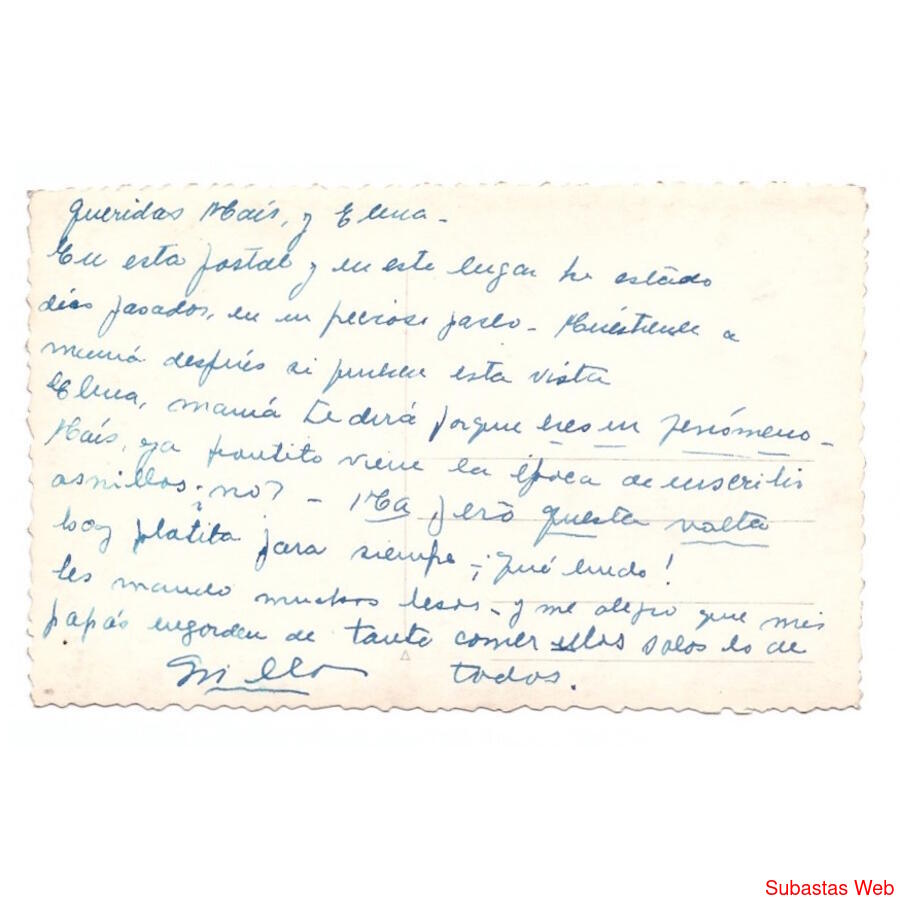 Queridas Maís, y Elena -
En esta postal y en este lugar he estado
días pasados, en un precioso paseo - Muéstrenle a
mamá después si pueden esta vista
Elena, mamá te dirá porque eres un fenómeno -
Maís, ya prontito viene la época de
asnillos ¿no? - ¡Ma pero questa volta
hay platita para siempre - ¡Qué lindo!
les mando muchos besos - y me alegro que mis
papás engorden de tanto comer ellos solos lo de
todos.
Subastas Web